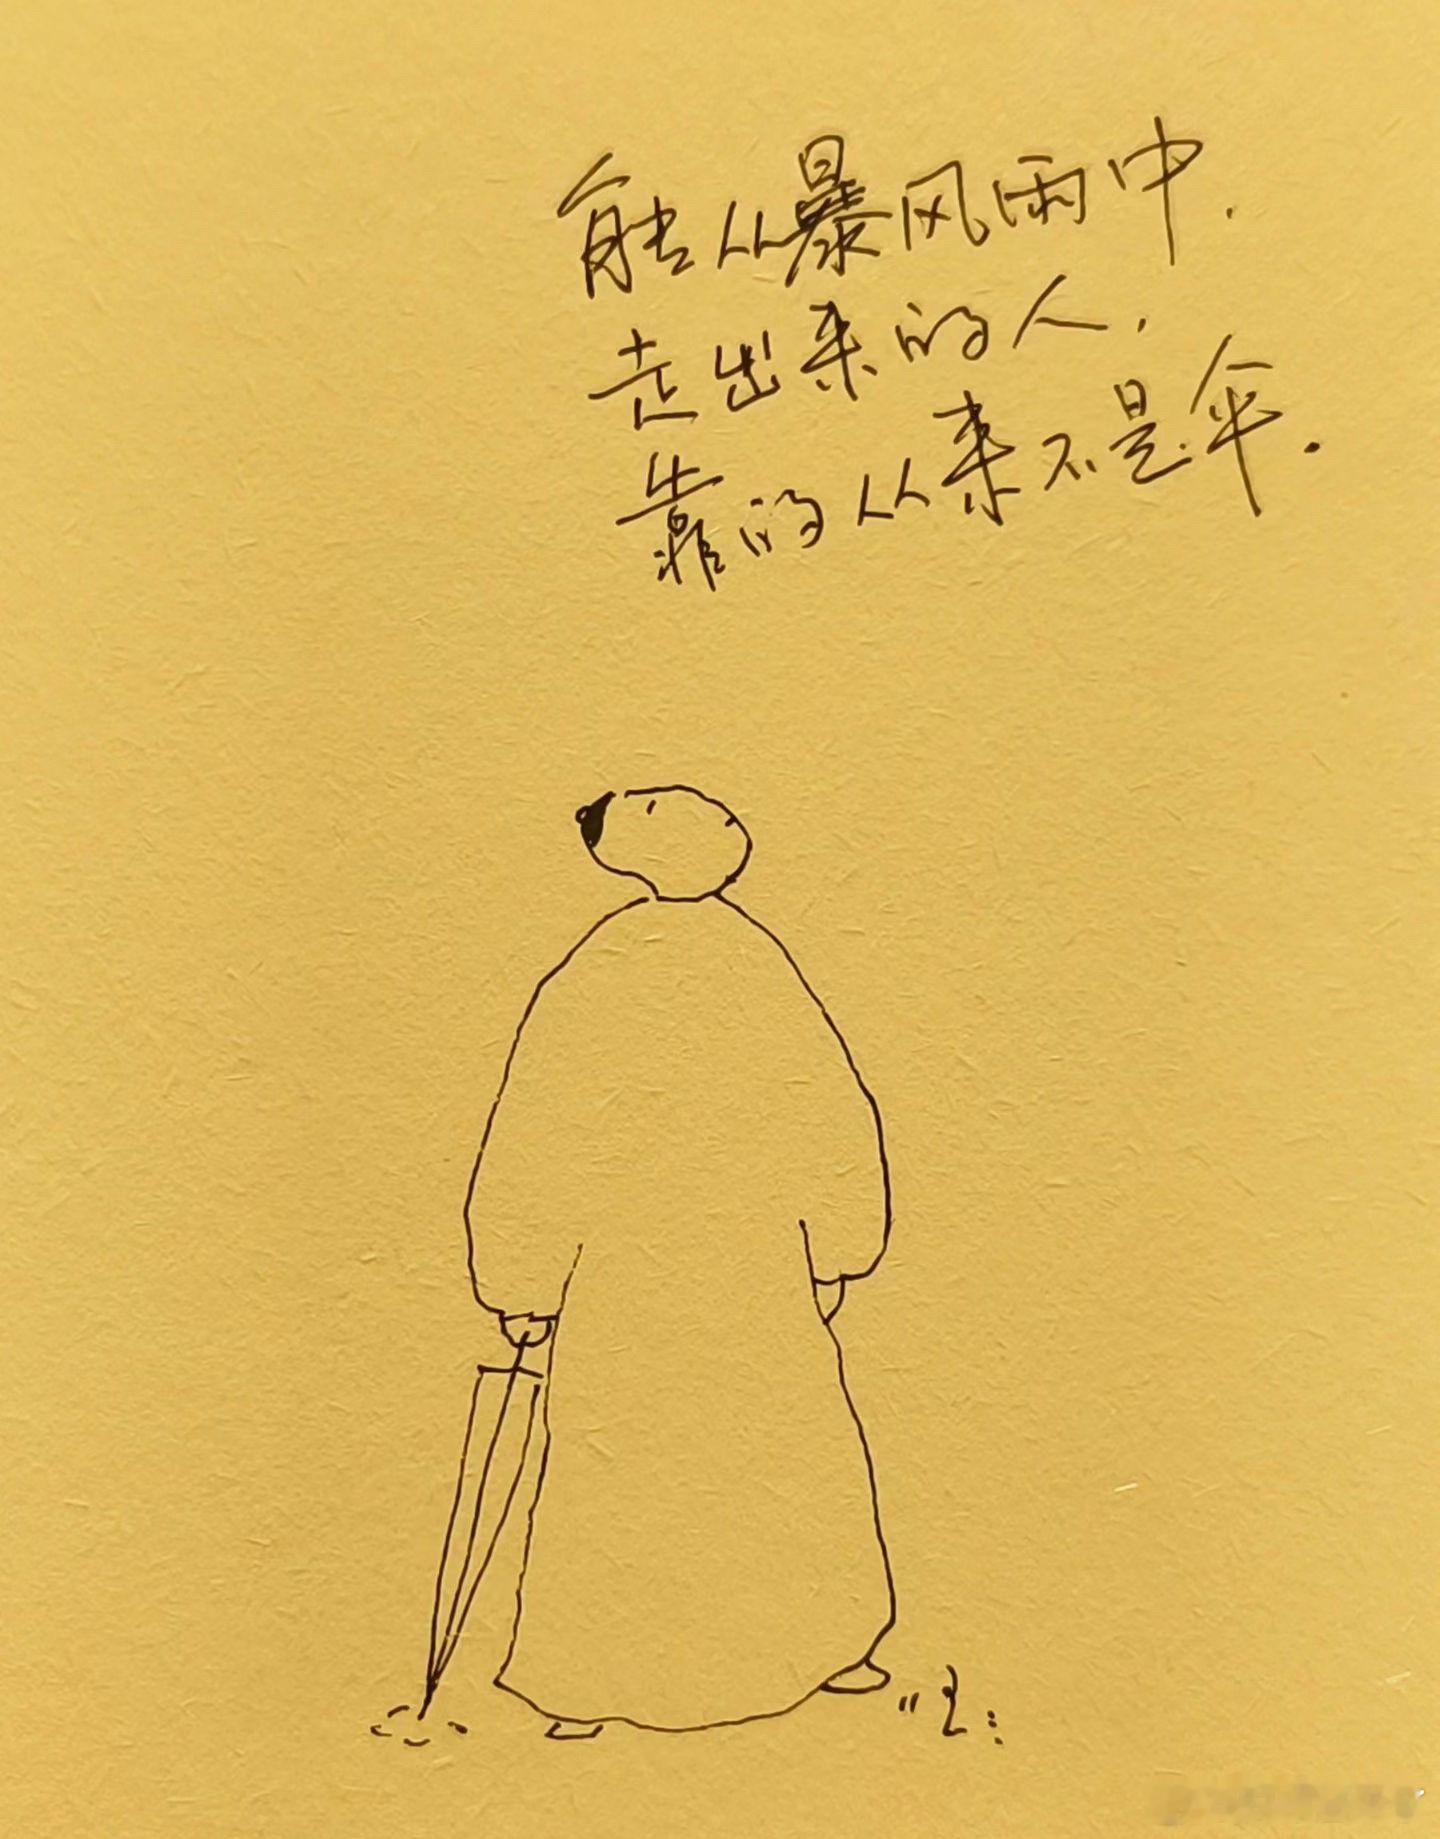 能从暴风雨中.
走出来的人,
靠的从来不是伞.